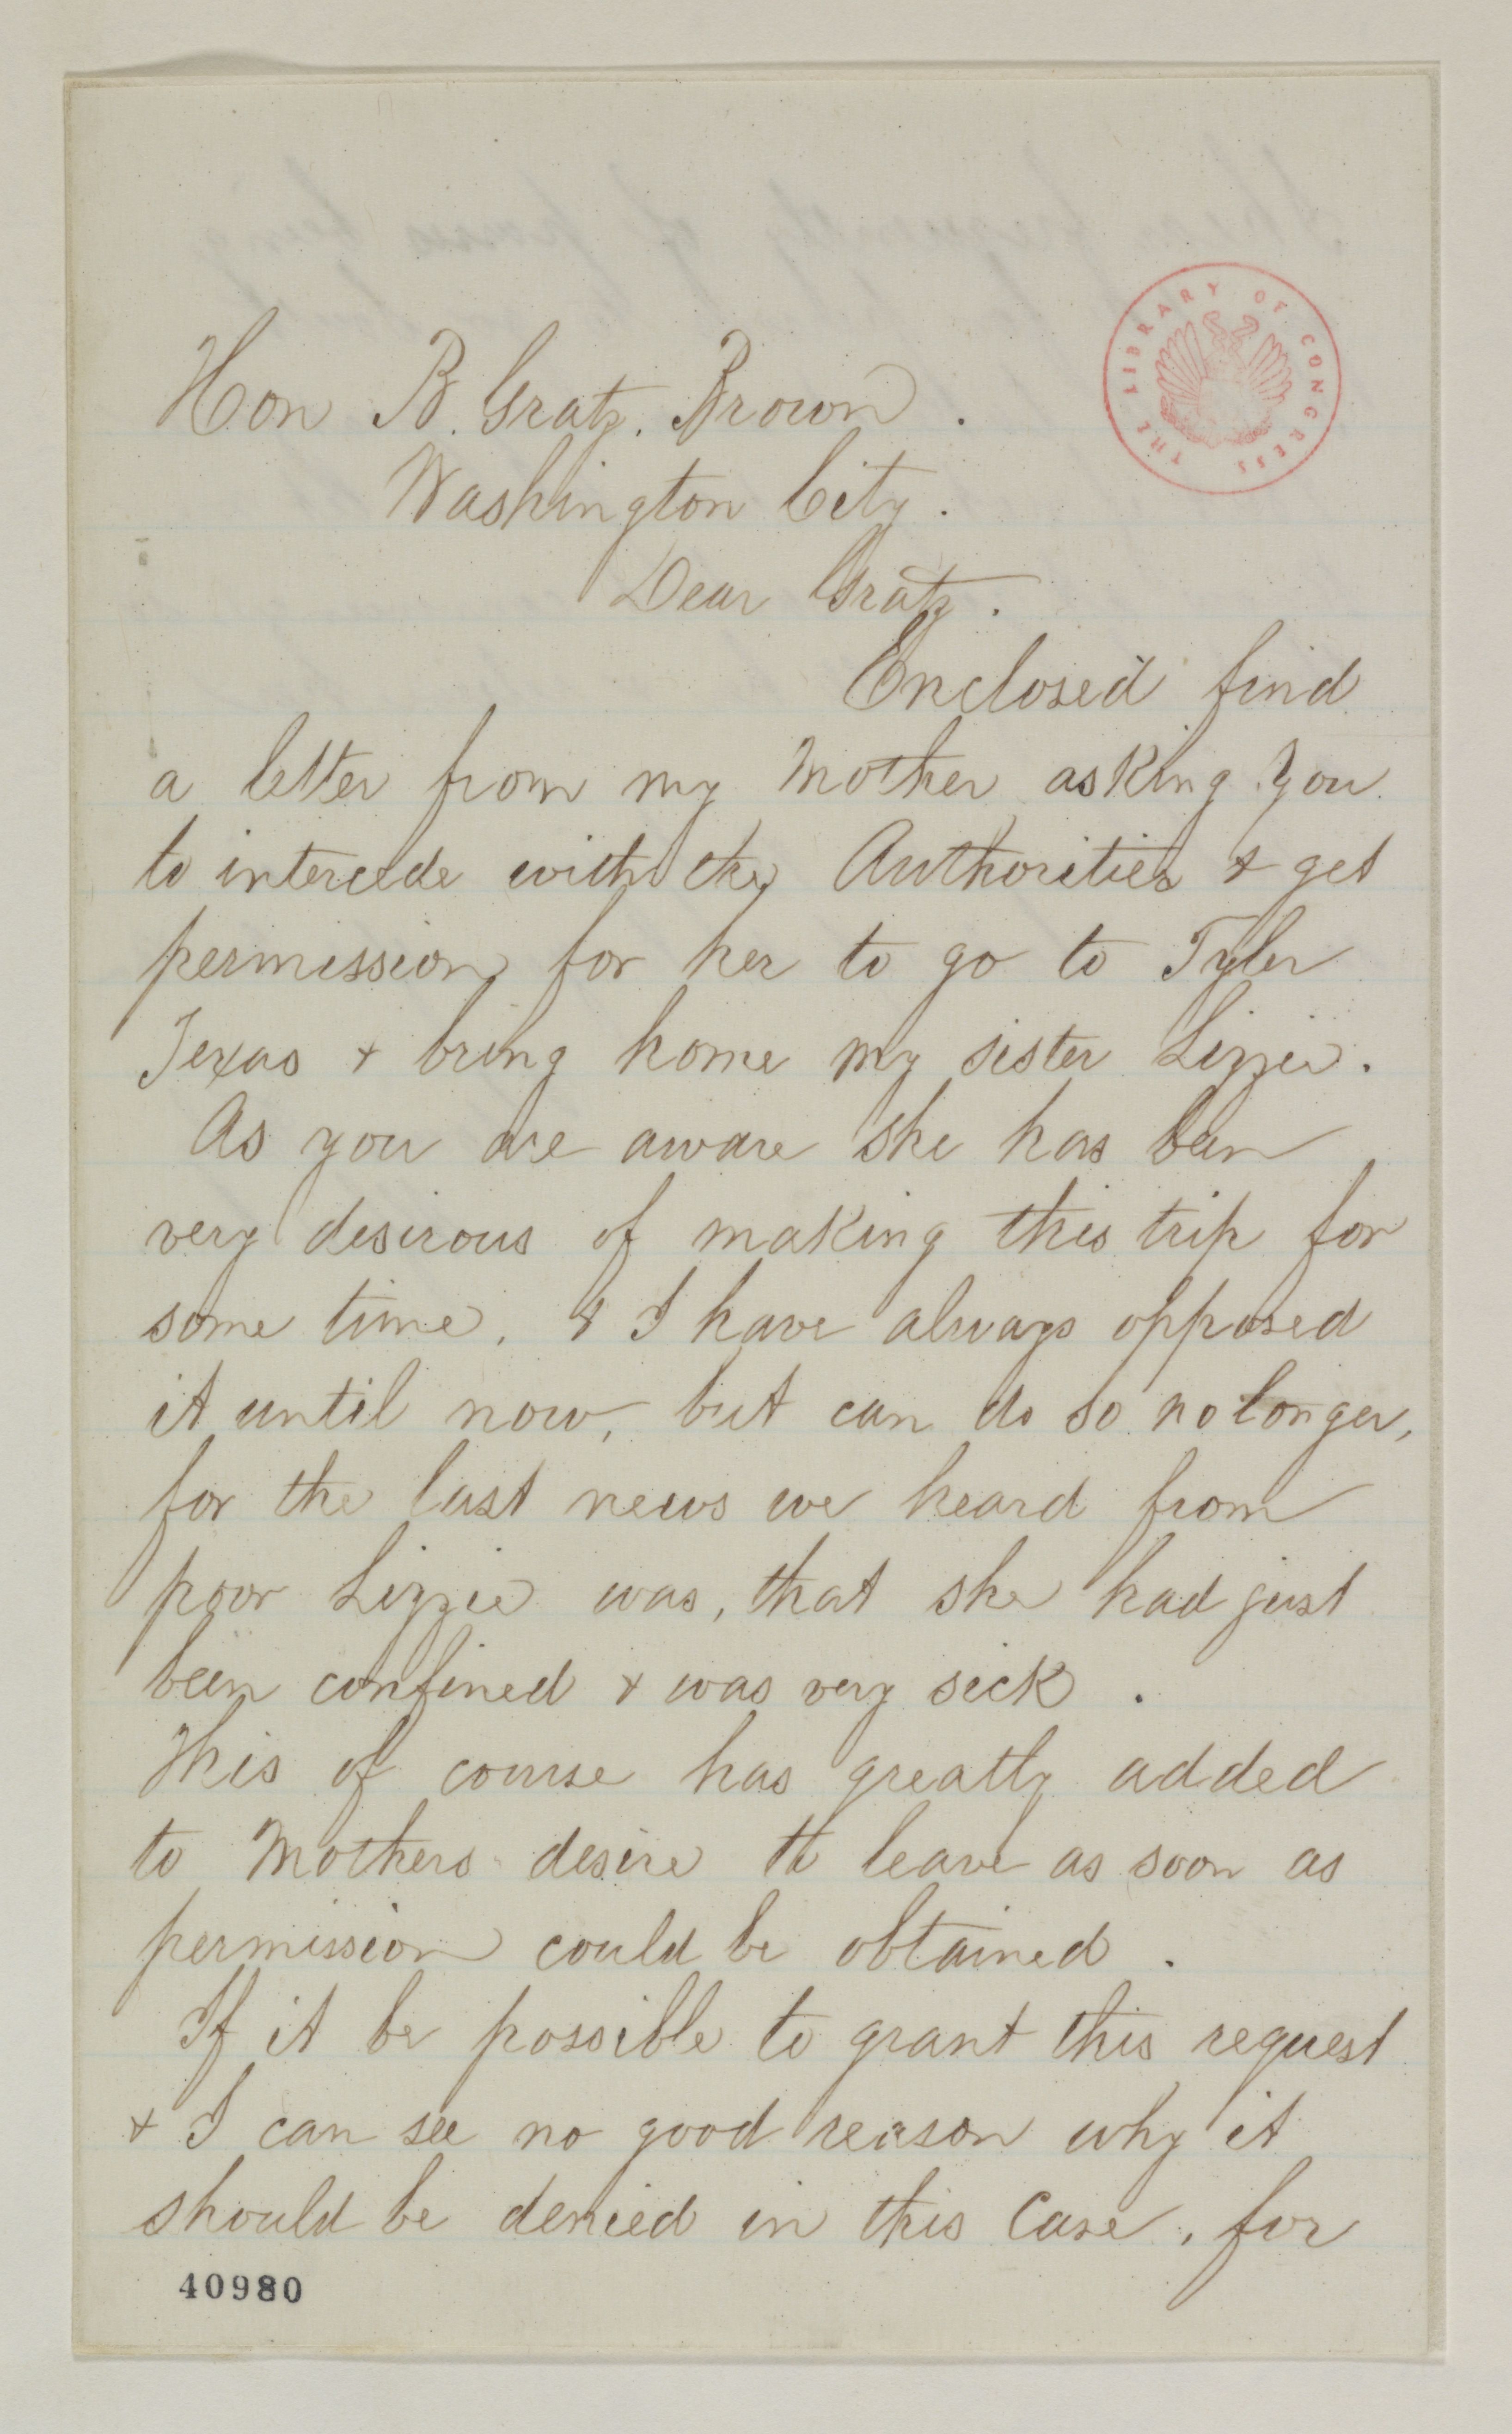 Hon B. Gratz. Brown.
THE LIBRARY OF CONGRESS
Washington City.
Dear Gratz.
Enclosed find
a letter from my Mother asking you
to intercede with the Authorities & get
permission for her to go to Tyler
Texas & bring home my sister Lizzie.
As you are aware she has been
very desirous of making this trip for
some time, & I have always opposed
it until now, but can do so no longer,
for the last news we heard from
poor Lizzie was, that she had just
been confined & was very sick.
This of course has greatly added
to Mothers desire to leave as soon as
permission could be obtained.
If it be possible to grant this request
& I can see no good reason why it
should be denied in this Case, for
40980